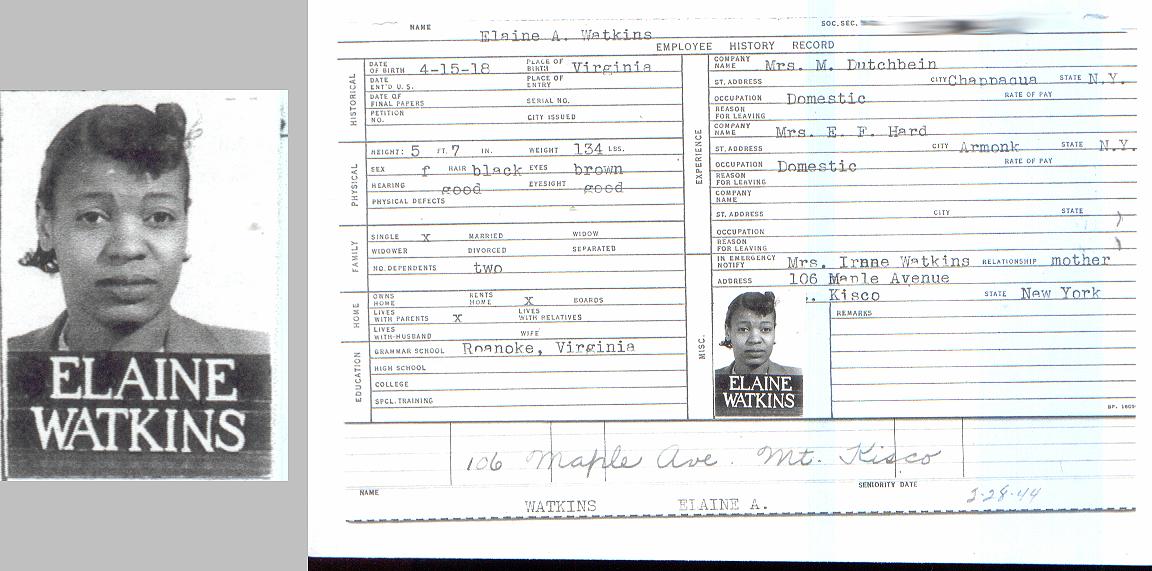 ELAINE
WATKINS
NAME Elaine A. Watkins SOC. SEC.
EMPLOYEE HISTORY RECORD
HISTORICAL
DATE OF BIRTH 4-15-18 PLACE OF BIRTH Virginia
DATE ENT'D U.S. PLACE OF ENTRY
DATE OF FINAL PAPERS SERIAL NO.
PETITION NO. CITY ISSUED
PHYSICAL
HEIGHT: 5 FT. 7 IN. WEIGHT 134 LBS.
SEX f HAIR black EYES brown
HEARING good EYESIGHT good
PHYSICAL DEFECTS
FAMILY
SINGLE x MARRIED WIDOW
WIDOWER DIVORCED SEPARATED
NO. DEPENDENTS two
HOME
OWNS HOME RENTS HOME x BOARDS
LIVES WITH PARENTS x LIVES WITH RELATIVES
LIVES WITH HUSBAND WIFE
EDUCATION
GRAMMAR SCHOOL Roanoke, Virginia
HIGH SCHOOL
COLLEGE
SPCL. TRAINING
EXPERIENCE
COMPANY NAME Mrs. M. Dutchbein
ST. ADDRESS CITY Chappaqua STATE N.Y.
OCCUPATION Domestic RATE OF PAY
REASON FOR LEAVING
COMPANY NAME Mrs. E. F. Hard
ST. ADDRESS CITY Armonk STATE N.Y.
OCCUPATION Domestic RATE OF PAY
REASON FOR LEAVING
COMPANY NAME
ST. ADDRESS CITY STATE
OCCUPATION
REASON FOR LEAVING
MISC.
IN EMERGENCY NOTIFY Mrs. Irnne Watkins RELATIONSHIP mother
ADDRESS 106 Maple Avenue
. Kisco STATE New York
REMARKS
ELAINE
WATKINS
106 Maple Ave. Mt. Kisco
NAME WATKINS ELAINE A. SENIORITY DATE 2-28-44